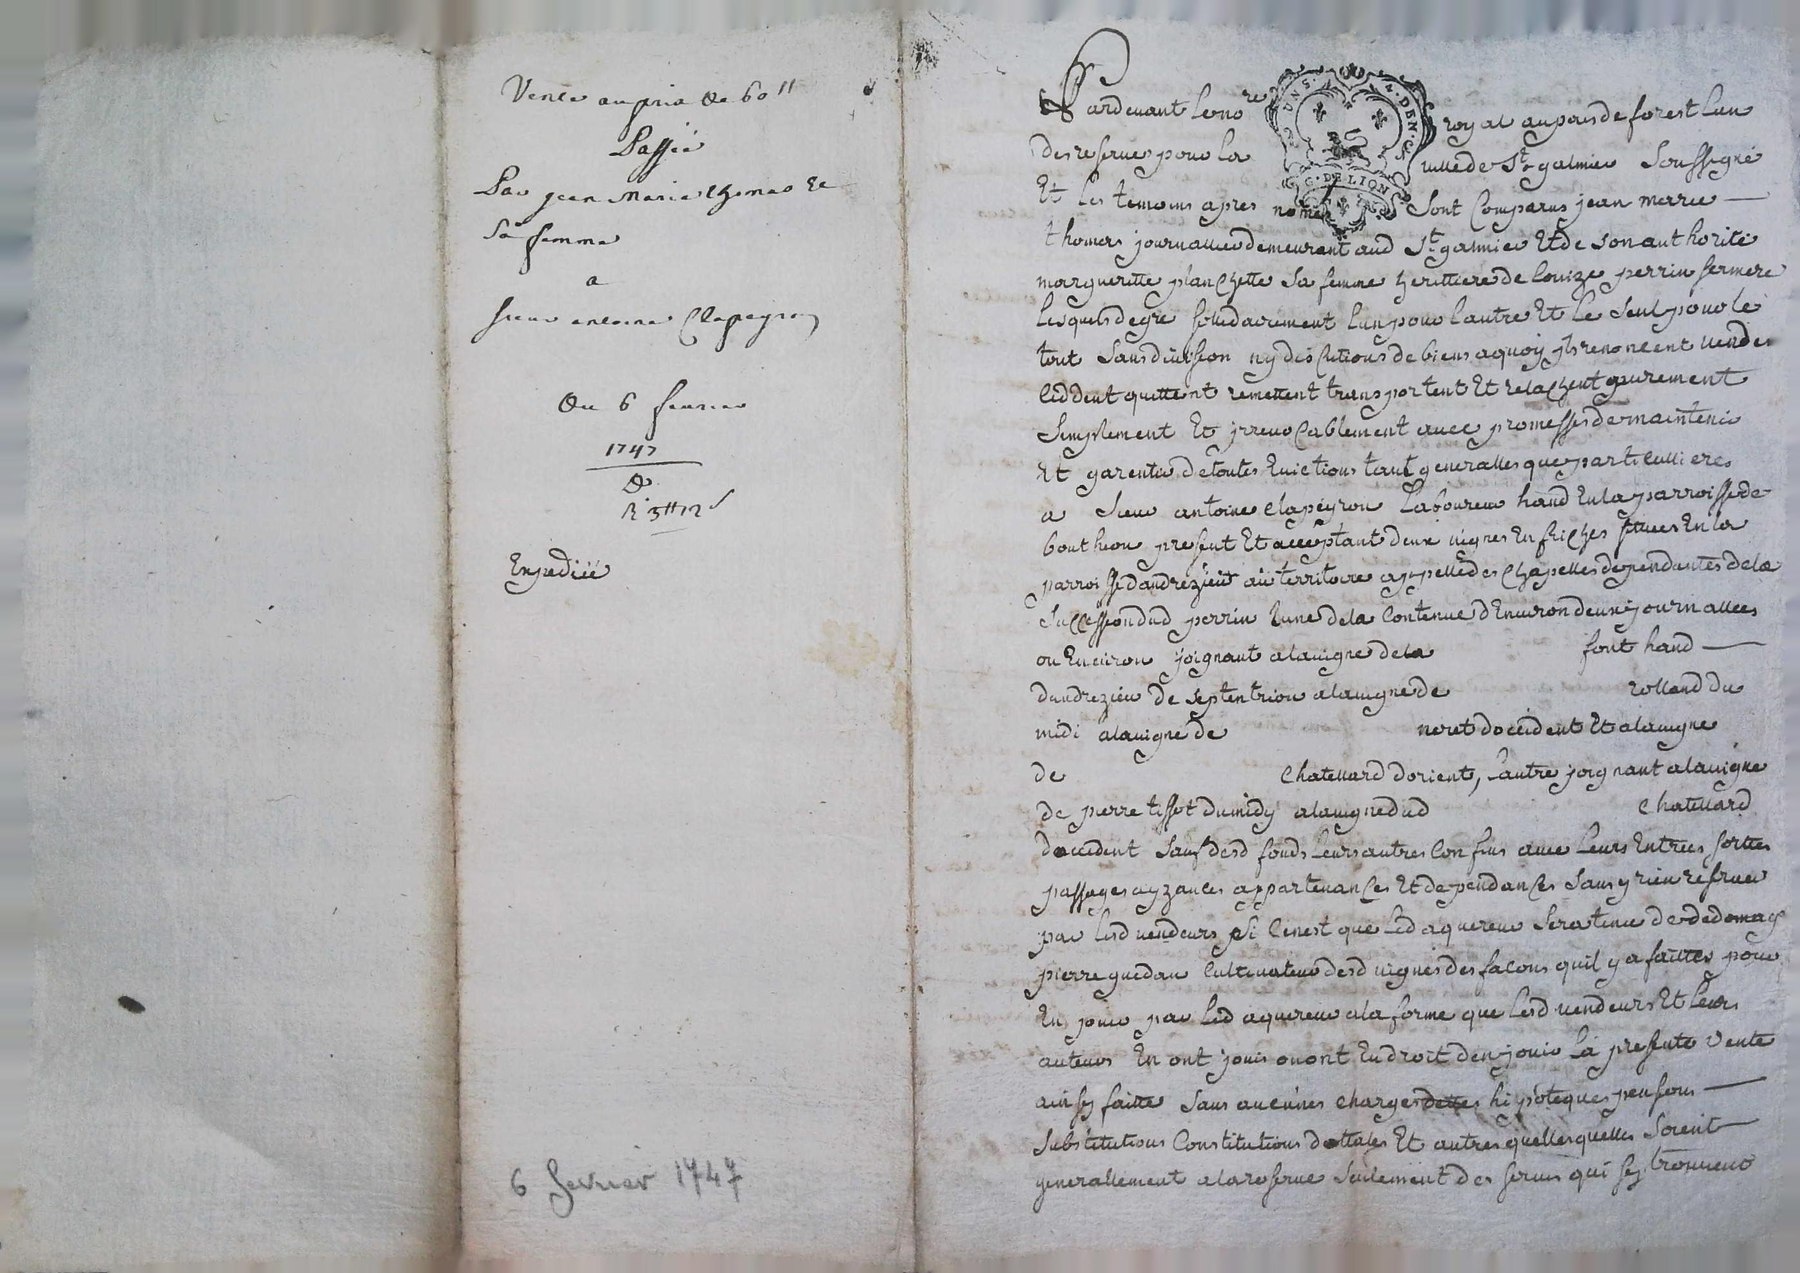 Vente au prix de 60 ll
Passée
Par jean Marie thomas Et
Sa femme
a
sieur antoine Clapeyron
Du 6 fevrier
1747
R 3ll 12s
Expediée
6 fevrier 1747
Pardevant le nore royal au pais de forest lun
des reserves pour la ville de St galmier Soussigné
Et Les temoins apres nomes Sont Comparus jean marie
thomas journallier demeurant aud St galmier Et de Son authorité
margueritte planchette Sa femme herittiere de louize perrin Sa mere
Lesquels de gré Sollidairement lun pour lautre Et le Seul pour le
tout Sans division ny discutions de biens a quoy ils renoncent vendes
Ceddent quittent remettent transportent Et relachent purement
Simplement Et jrrevocablement avec promesses de maintenir
Et garentir de toutes Evictions tant generalles que particullieres
a Sieur antoine Clapeyron Laboureur habd En la parroisse de
boutheon present Et acceptant deux vignes En friches Situees En la
parroisse dandrezieu au territoire appellé des Chapelles dependantes de la
Successiond dud perrin lune de la Contenue dEnviron deux journallees
ou Environ joignant a la vigne de la font habd
dandrezieu de Septentrion a la vigne de rolland du
midi a la vigne de neret doccident Et a la vigne
de Chatelard dorient, lautre joignant a la vigne
de pierre tissot du midy a la vigne dud Chatelard
doccident Sauf desd fonds Leurs autres Confins avec Leurs Entrees Sorties
passages ayzances appartenances Et dependances Sans y rien reserver
par Lesd vendeurs Si Cenest que Led aquereur Sera tenu de dedomager
pierre guedau Cultivateur desd vignes des facons quil y a faittes pour
En jouir par Led aquereur a la forme que Lesd vendeurs Et Leurs
auteurs En ont jouis ou ont Eu droit den jouir La presente vente
ainsy faitte Sans aucunes charges dettes hipoteques pensions
Substitutions Constitutions dottales Et autres quelles quelles Soient
generallement a la reserve Seulement des Servis qui Sy trouveront